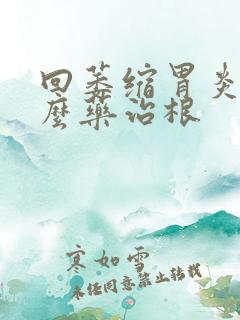 回萎缩胃炎
麽药治根
寒如雪
未经同意禁止转载